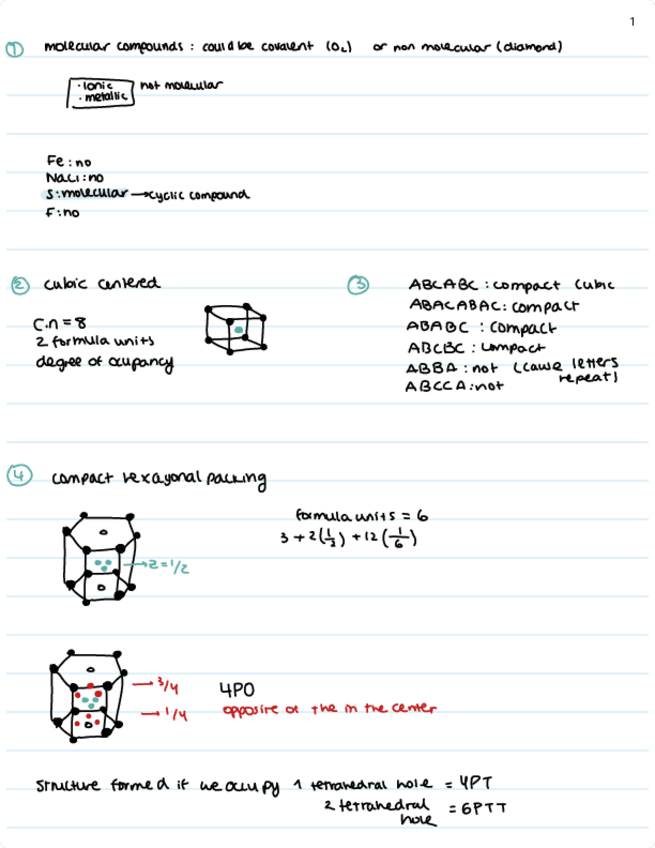 1
① molecular compounds : could be covalent (O₂) or non molecular (diamond)
· Ionic
· metallic
not molecular
Fe : no
NaCl : no
S : molecular → cyclic compound
F : no
② cubic centered
C.n = 8
2 formula units
degree of ocupancy
③ ABCABC : compact cubic
ABACABAC : compact
ABABC : compact
ABCBC : compact
ABBA : not (cause letters repeat)
ABCCA : not
④ compact hexagonal packing
formula units = 6
3 + 2(1/2) + 12(1/6)
→ z = 1/2
→ 3/4
→ 1/4
4PO
opposite of the in the center
Structure formed if we occupy 1 tetrahedral hole = 4PT
2 tetrahedral hole = 6PTT